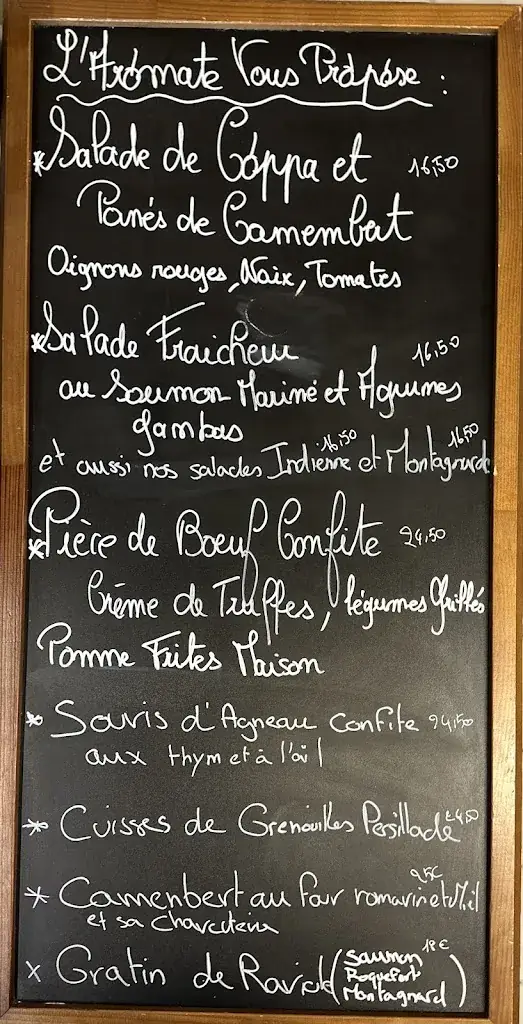 L'Arômate Vous Propose :
*Salade de Coppa et 16,50
Panés de Camembert
Oignons rouges, Noix, Tomates
*Salade Fraîcheur 16,50
au Saumon Mariné et Agrumes
gambas
et aussi nos salades Indienne 16,50 et Montagnarde 16,50
*Pièce de Boeuf Confite 24,50
Crème de Truffes, légumes Grillés
Pomme Frites Maison
* Souris d'Agneau confite 24,50
aux thym et à l'ail
* Cuisses de Grenouilles Persillade 24,50
* Camenbert au four romarin et Miel
et sa charcuterie
x Gratin de Ravioles (Saumon 18€
Roquefort
Montagnard)